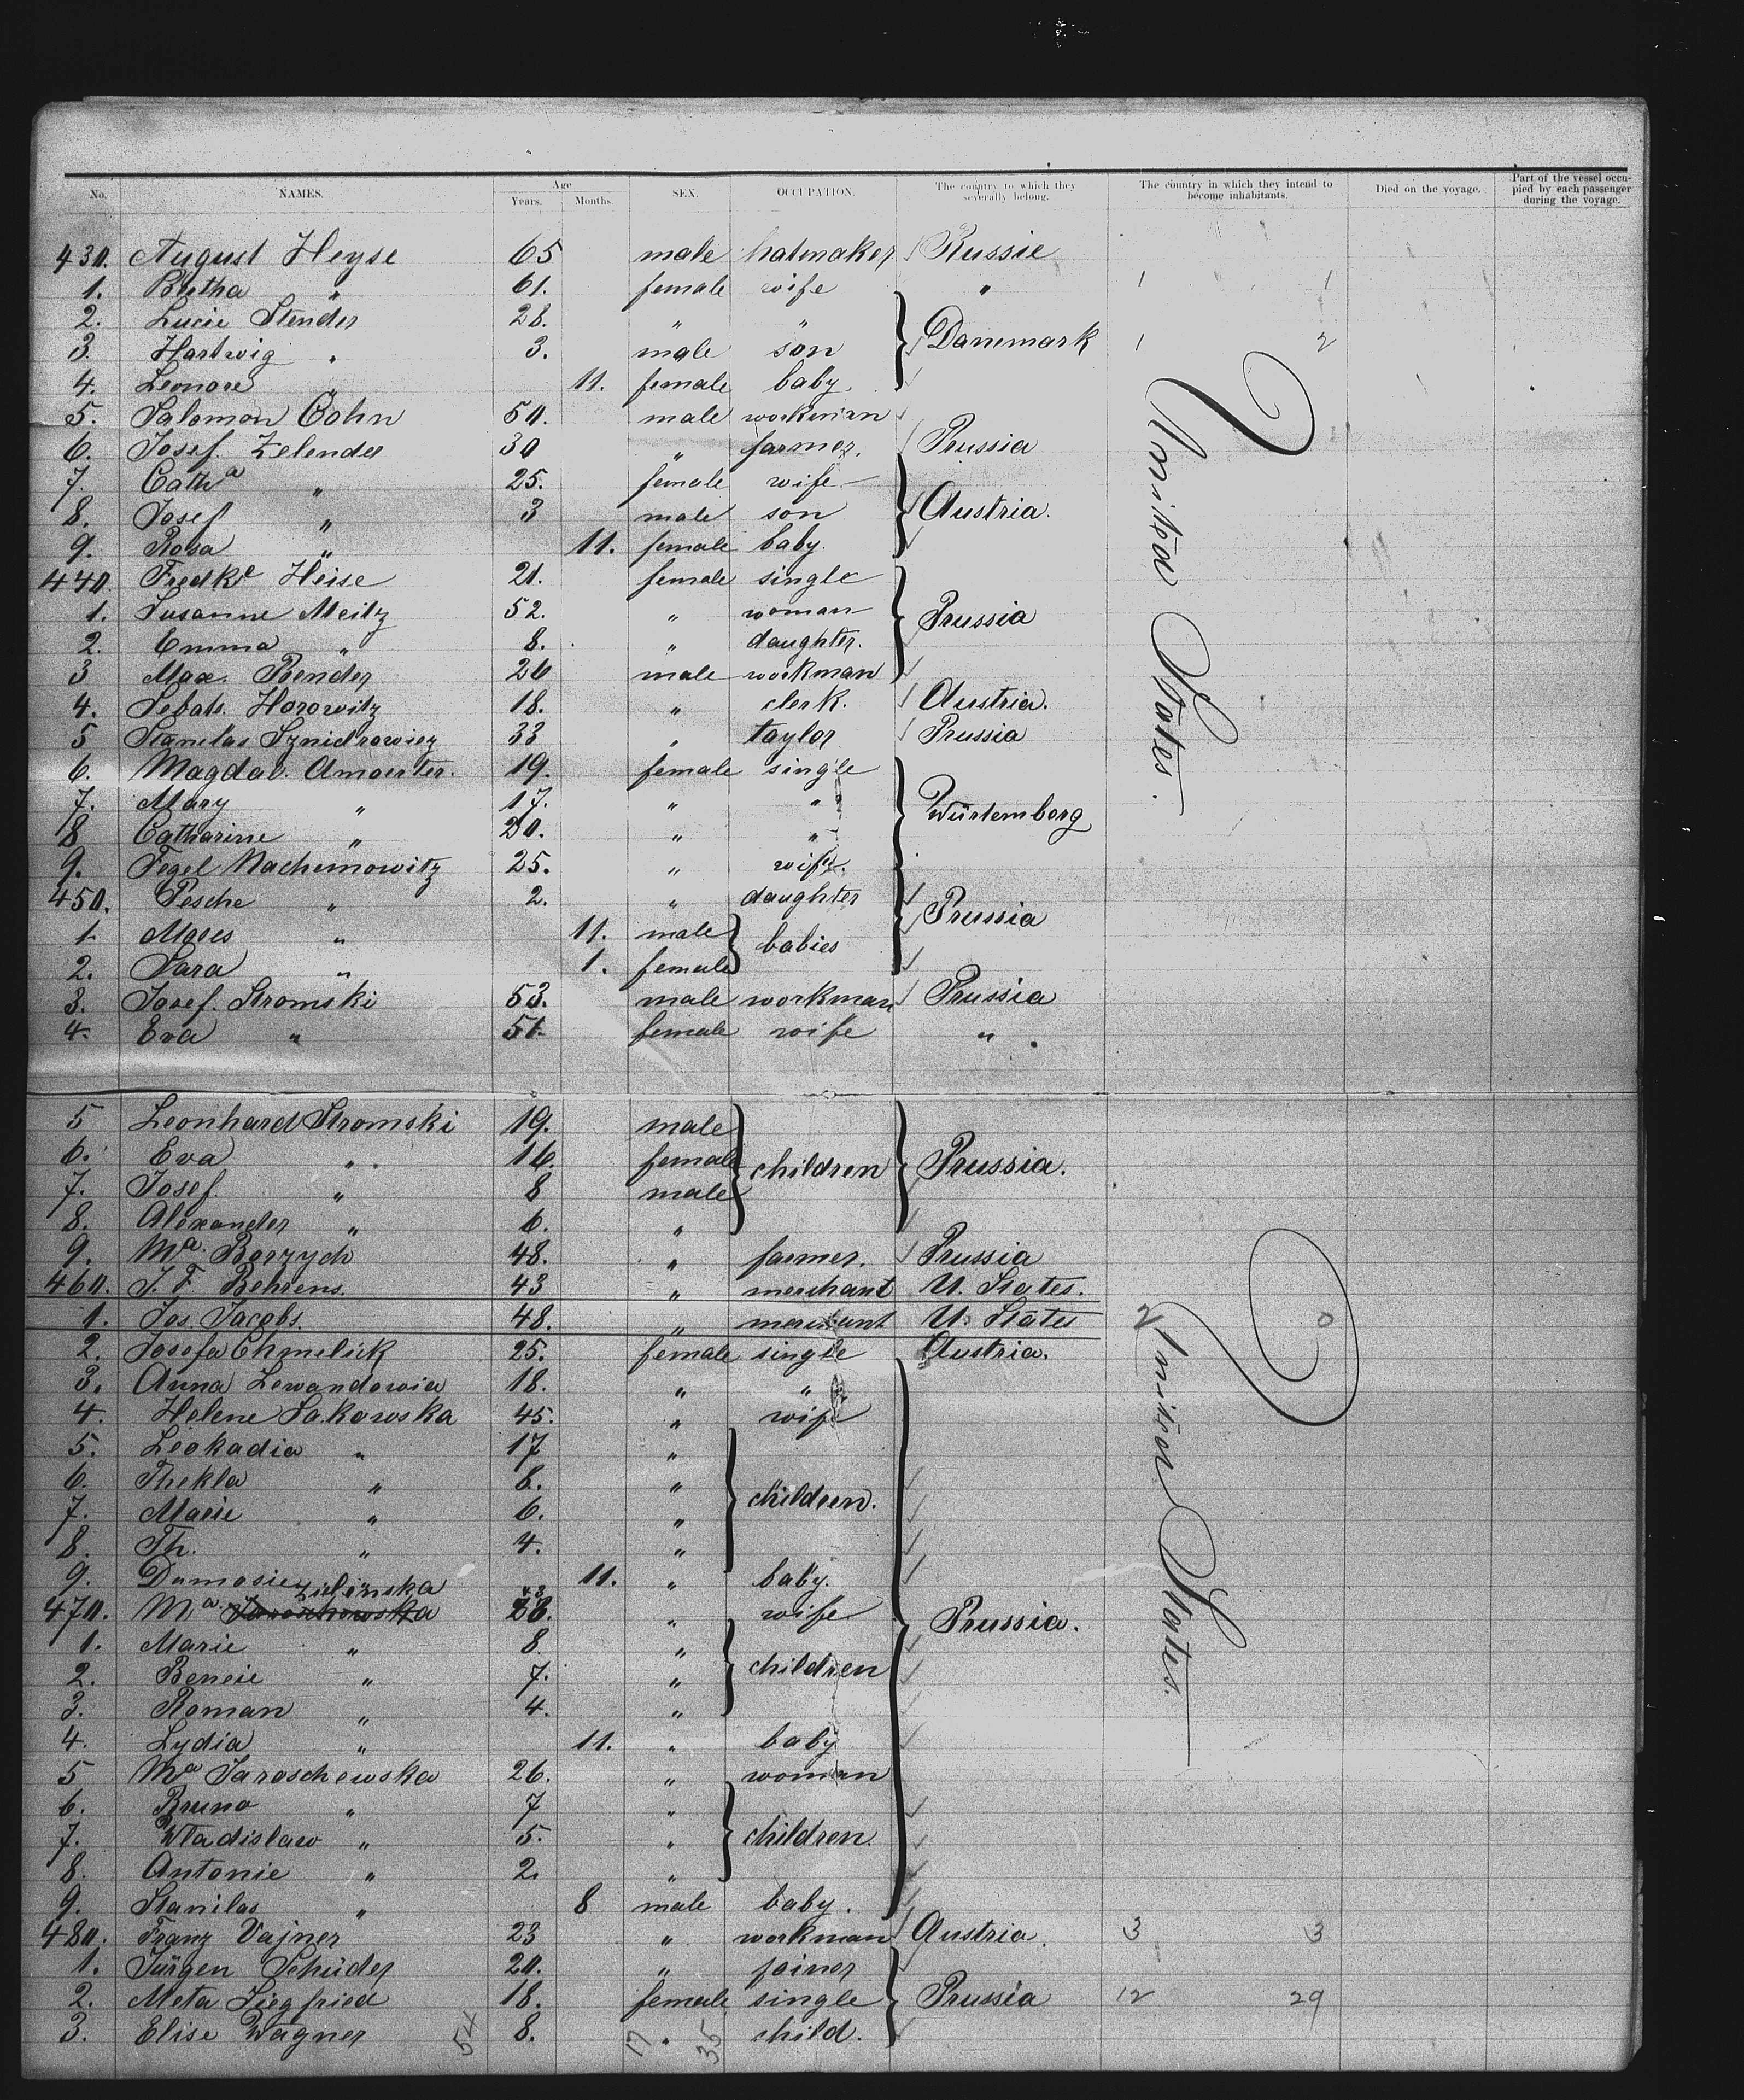 No. NAMES. Age Years. Months. SEX. OCCUPATION. The country to which they severally belong. The country in which they intend to become inhabitants. Died on the voyage. Part of the vessel occupied by each passenger during the voyage.
430. August Heyse 65 male hatmaker Russie
1. Bertha " 61. female wife "
2. Lucie Stender 28. " "
3. Hartwig " 3. male son Danemark
4. Leonore " 11. female baby.
5. Salomon Cohn 50. male workman
6. Josef. Zelenda 30 " farmer. Prussia
7. Cath a " 25. female wife
8. Josef " 3 male son Austria.
9. Rosa " 11. female baby.
440. Fredke Heise 21. female single
1. Susanne Meitz 52. " woman Prussia
2. Emma " 8. " daughter.
3 Max. Bender 26 male workman
4. Sebats. Horowitz 18. " clerk. Austria.
5 Stanilas Sznidrowicz 33 " taylor Prussia
6. Magdal. Amoerter. 19. female single
7. Mary " 17. " "
8 Catharine " 20. " " Würtemberg
9. Fegel Nachemowitz 25. " wife.
450. Pesche " 2. " daughter Prussia
1. Moses " 11. male babies
2. Sara " 1. female
3. Josef. Stromski 53. male workman Prussia
4. Eva " 51. female wife "
United States.
5 Leonhard Stromski 19. male
6. Eva " 16. female children Prussia.
7. Josef. " 8 male
8. Alexander " 6. "
9. Ma. Borzych 48. " farmer. Prussia
460. J. F. Behrens. 43 " merchant U. States.
1. Jos. Jacobs. 48. " merchant U. States
2. Josefa Chmelick 25. female single Austria.
3. Anna Lewandowia 18. " "
4. Helene Sakowska 45. " wife
5. Leokadia " 17 "
6. Thekla " 8. " children.
7. Marie " 6. "
8. Th. " 4. "
9. Damosie " 11. " baby.
Zielinska
470. Ma. Jaroschowska 28. " wife Prussia.
1. Marie " 8. "
2. Beneie " 7. " children
3. Roman " 4. "
4. Lydia " 11. " baby
5 Ma Jaroschewska 26. " woman
6. Bruno " 7 "
7. Wladislaw " 5. " children.
8. Antonie " 2. "
9. Stanilas " 8 male baby.
480. Franz Vajner 23 " workman Austria. 3 3
1. Jürgen Schüder 20. " joiner
2. Meta Siegfried 18. female single Prussia 12 29
3. Elise Wagner 8. " child.
United States.
54 17 35